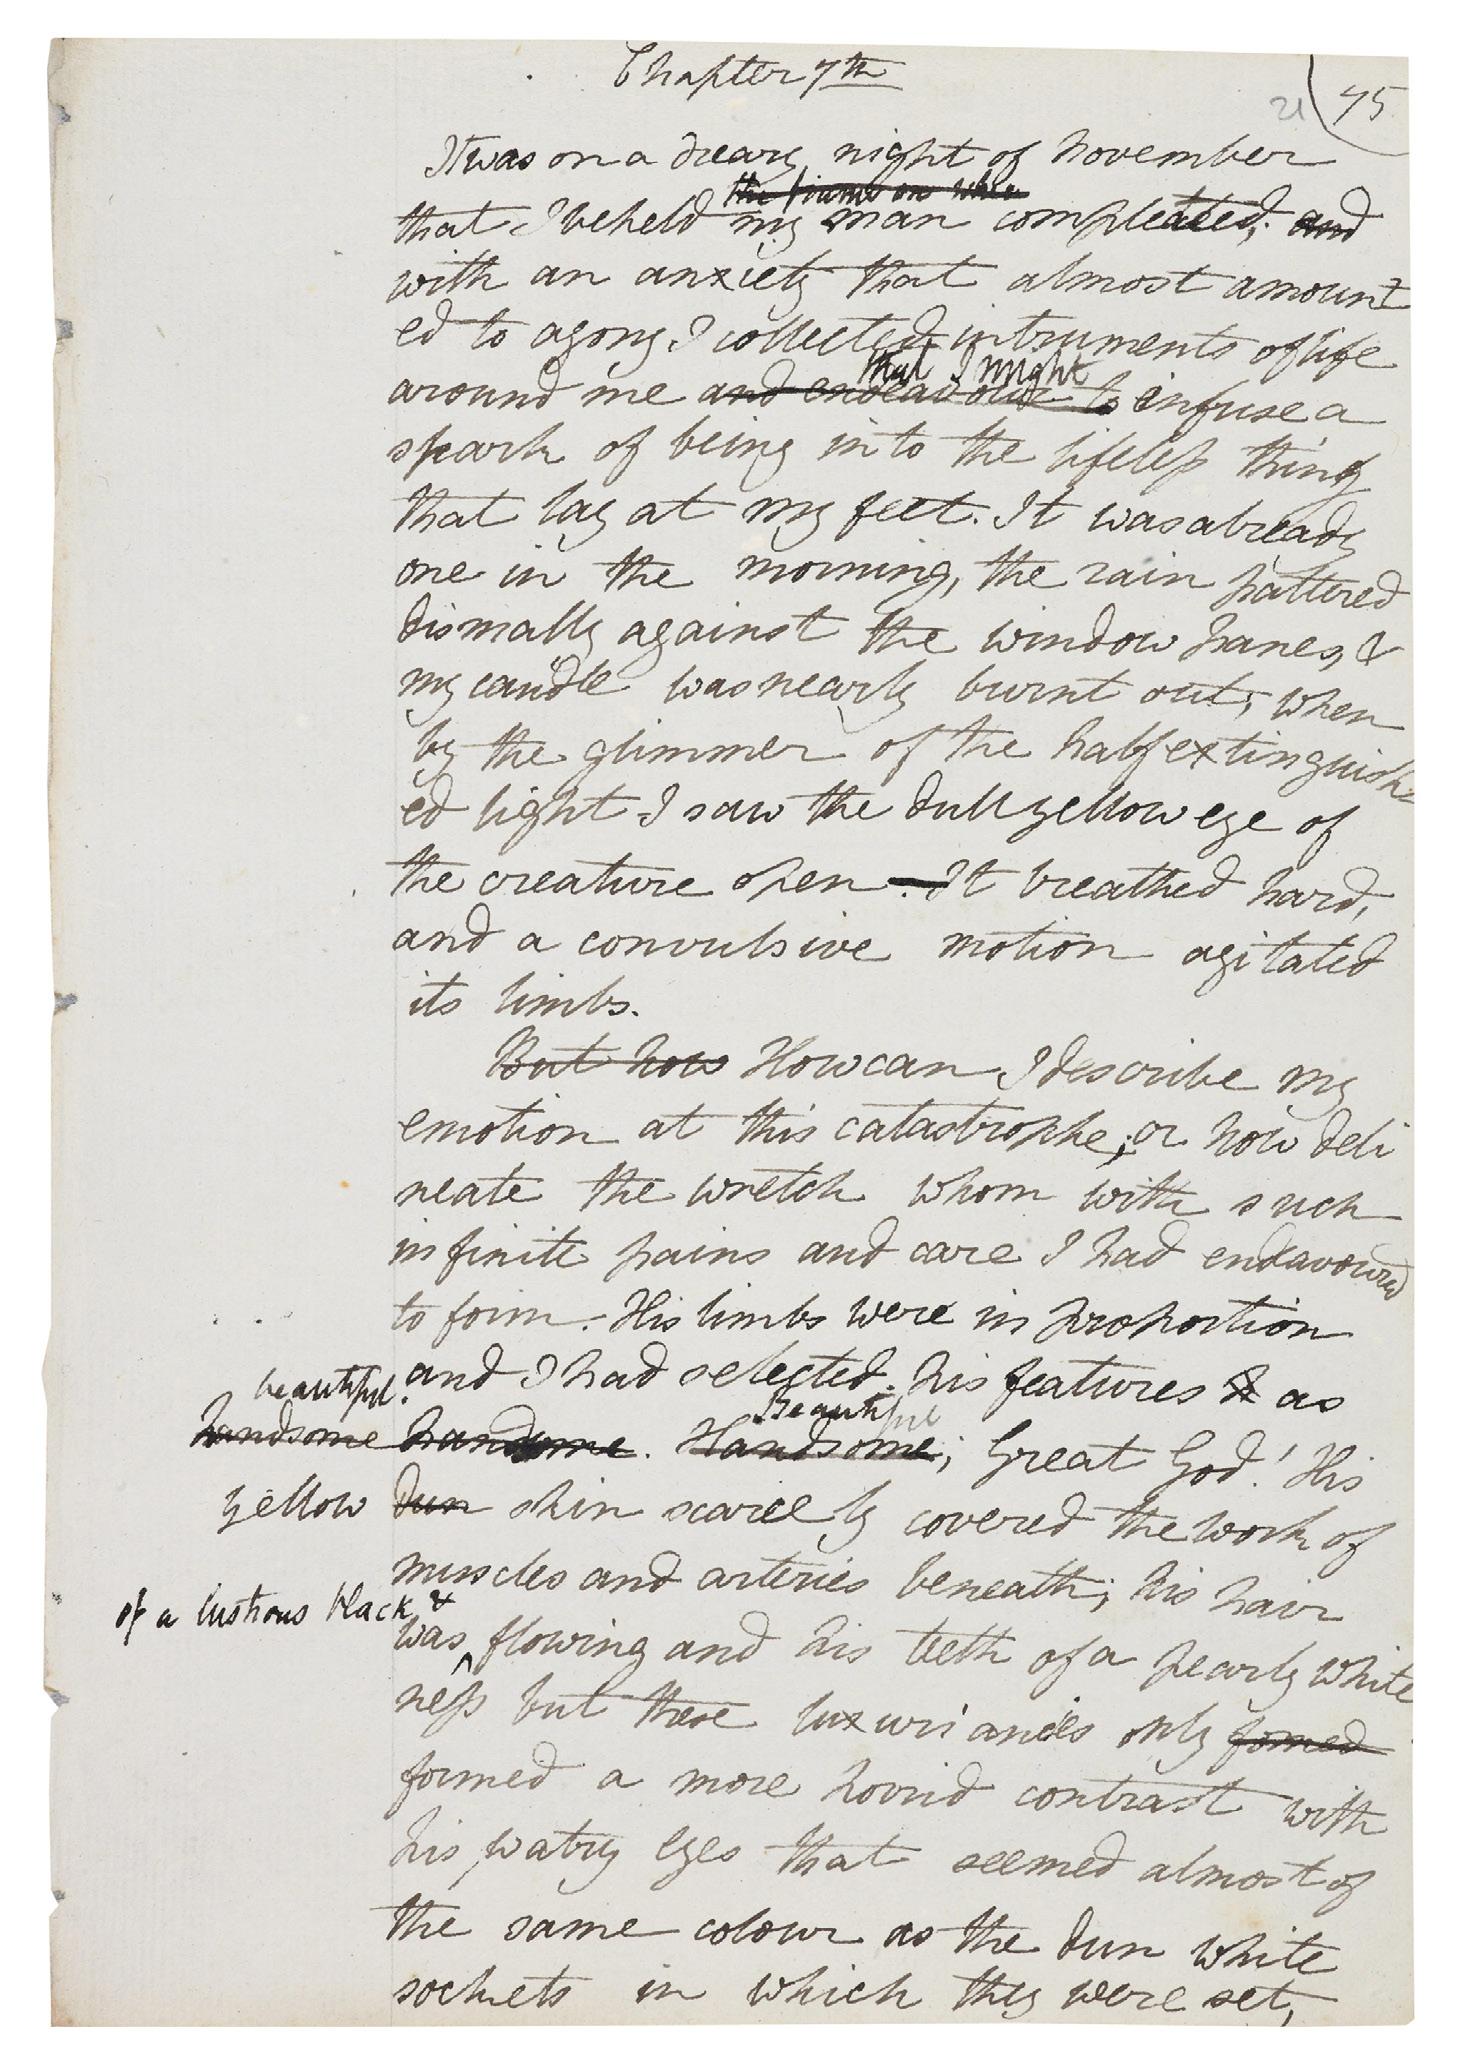 Chapter 7th
21 75
It was on a dreary night of November
the frame on whic
that I beheld my man compleated, and
with an anxiety that almost amount
ed to agony I collected intruments of life
that I might
around me and endeavour to infuse a
spark of being into the lifeless thing
that lay at my feet. It was already
one in the morning, the rain pattered
dismally against the window panes, &
my candle was nearly burnt out, when
by the glimmer of the half extinguish
ed light I saw the dull yellow eye of
the creature open. — It breathed hard,
and a convulsive motion agitated
its limbs.
But how How can I describe my
emotion at this catastrophe; or how deli
neate the wretch whom with such
infinite pains and care I had endavoured
to form. His limbs were in proportion
and I had selected his features as
beautiful.
handsome handsome. Handsome; Great God! His
Beautiful
yellow dun skin scarcely covered the work of
muscles and arteries beneath; his hair
of a lustrous black &
was flowing and his teeth of a pearly white
ness but these luxuriancies only formed
formed a more horrid contrast with
his watry eyes that seemed almost of
the same colour as the dun white
sockets in which they were set,